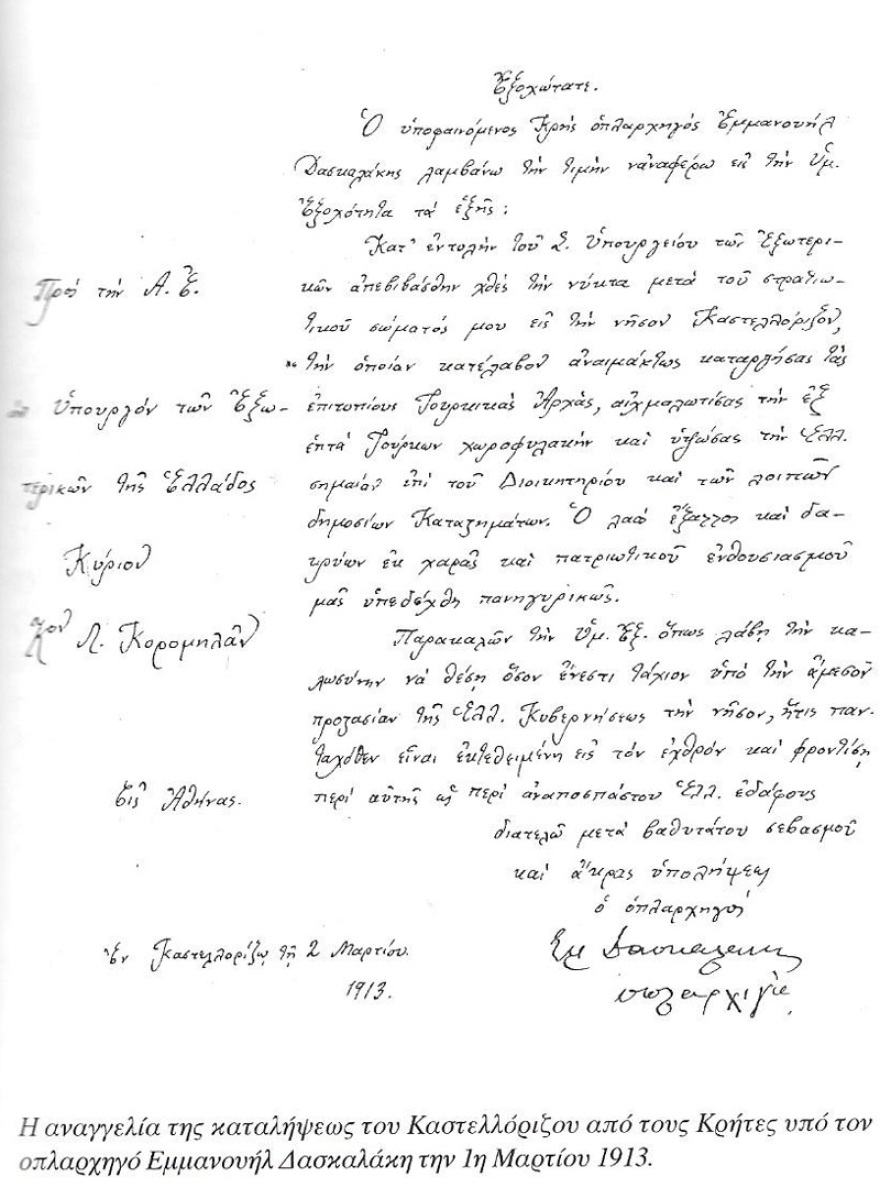 Ἐξοχώτατε.
Ὁ ὑποφαινόμενος Κρὴς ὁπλαρχηγός Ἐμμανουήλ
Δασκαλάκης λαμβάνω τὴν τιμὴν νἀναφέρω εἰς τὴν Ὑμ.
Ἐξοχότητα τὰ ἑξῆς:
Κατ' ἐντολὴν τοῦ Σ. Ὑπουργείου τῶν Ἐξωτερι-
κῶν ἀπεβιβάσθην χθὲς τὴν νύκτα μετὰ τοῦ στρατιω-
τικοῦ σώματός μου εἰς τὴν νῆσον Καστελλόριζον,
τὴν ὁποίαν κατέλαβον ἀναιμάκτως καταργήσας τὰς
ἐπιτοπίους Τουρκικὰς Ἀρχὰς, αἰχμαλωτίσας τὴν ἐξ
ἑπτὰ Τούρκων χωροφυλακὴν καὶ ὑψώσας τὴν Ἑλλ.
σημαίαν ἐπὶ τοῦ Διοικητηρίου καὶ τῶν λοιπῶν
δημοσίων Καταστημάτων. Ὁ λαὸς ἔξαλλος καὶ δα-
κρύων ἐκ χαρᾶς καὶ πατριωτικοῦ ἐνθουσιασμοῦ
μᾶς ὑπεδέχθη πανηγυρικῶς.
Παρακαλῶν τὴν Ὑμ. Ἐξ. ὅπως λάβῃ τὴν κα-
λωσύνην νὰ θέσῃ ὅσον ἔνεστι τάχιον ὑπὸ τὴν ἄμεσον
προστασίαν τῆς Ἑλλ. Κυβερνήσεως τὴν νῆσον, ἥτις παν-
ταχόθεν εἶναι ἐκτεθειμένη εἰς τὸν ἐχθρόν καὶ φροντίσῃ
περὶ αὐτῆς ὡς περὶ ἀναποσπάστου Ἑλλ. ἐδάφους
διατελῶ μετὰ βαθυτάτου σεβασμοῦ
καὶ ἄκρας ὑπολήψεως
ὁ ὁπλαρχηγός
Εμ Δασκαλακης
Πρὸς τὴν Α. Ἐ.
Ὑπουργόν τῶν Ἐξω-
τερικῶν τῆς Ἑλλάδος
Κύριον
Κον Λ. Κορομηλᾶν
Εἰς Ἀθήνας.
Ἐν Καστελλορίζῳ τῇ 2 Μαρτίου.
1913.
Η αναγγελία της καταλήψεως του Καστελλόριζου από τους Κρήτες υπό τον
οπλαρχηγό Εμμανουήλ Δασκαλάκη την 1η Μαρτίου 1913.